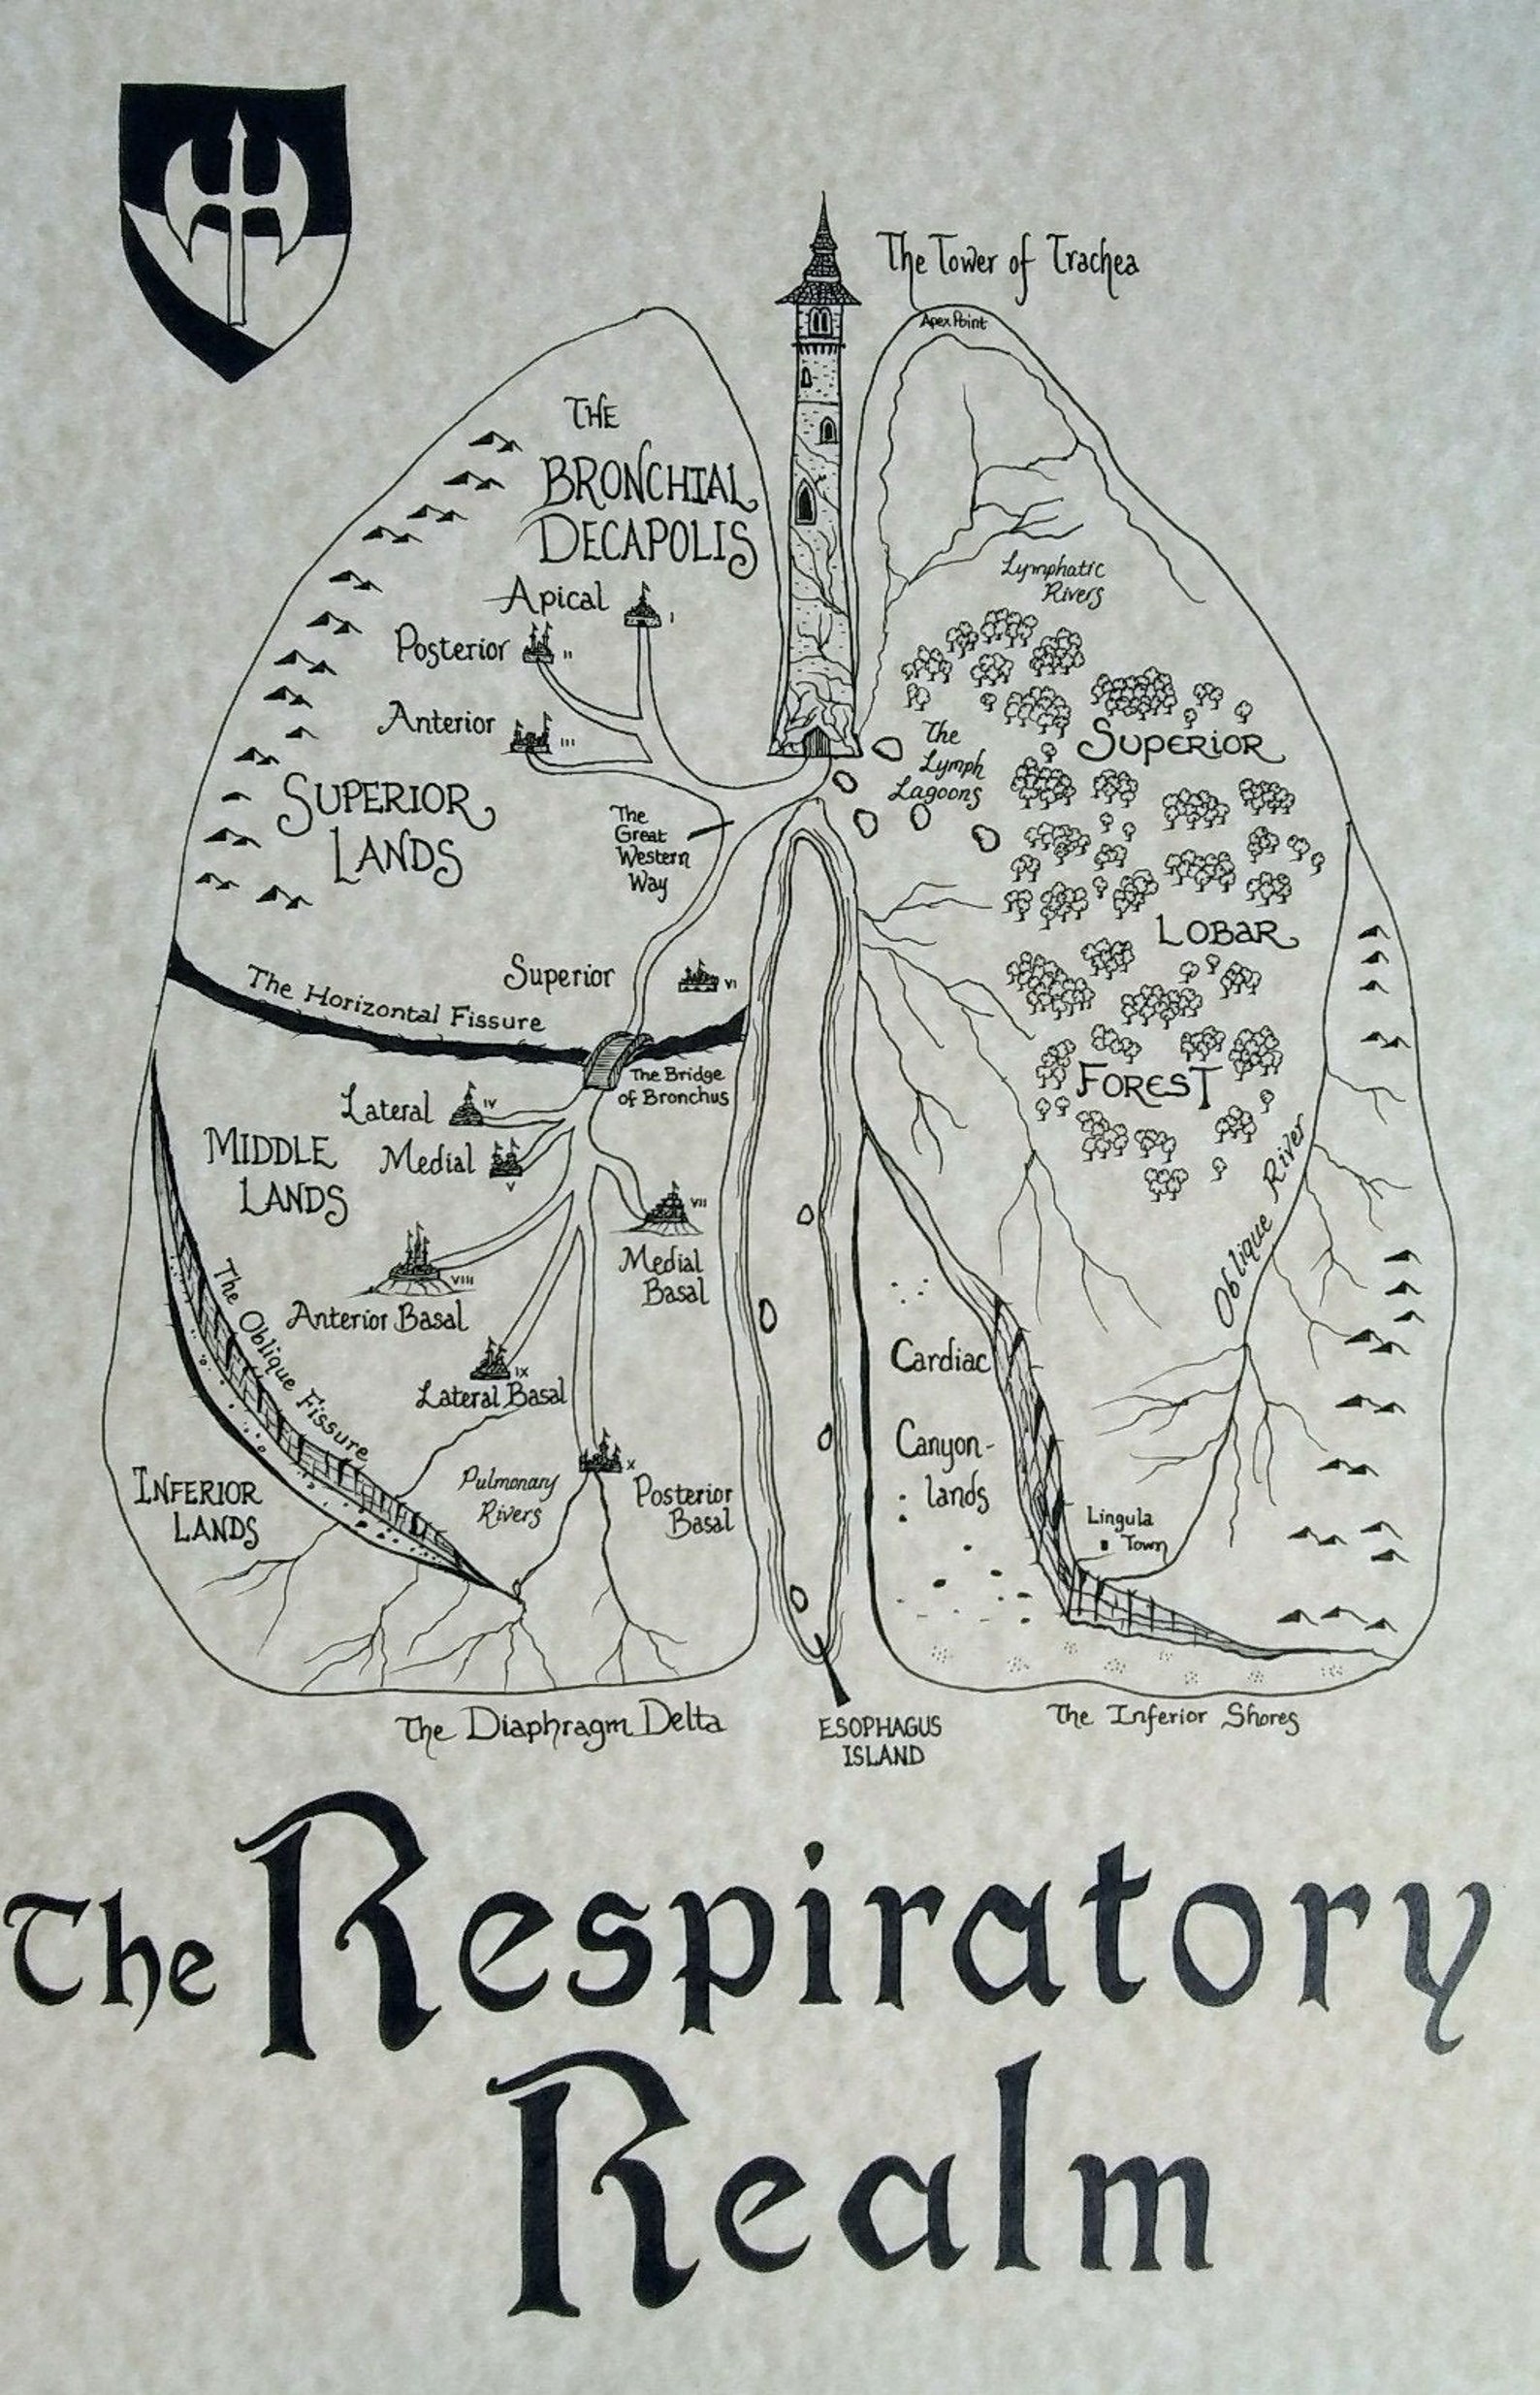 The Tower of Trachea
Apex Point
THE
BRONCHIAL
DECAPOLIS
Apical
I
Posterior
II
Anterior
III
SUPERIOR
LANDS
The
Great
Western
Way
Lymphatic
Rivers
The
Lymph
Lagoons
SUPERIOR
LOBAR
FOREST
Superior
VI
The Horizontal Fissure
The Bridge
of Bronchus
Lateral
IV
MIDDLE
LANDS
Medial
V
VII
Medial
Basal
VIII
Anterior Basal
The Oblique Fissure
IX
Lateral Basal
INFERIOR
LANDS
Pulmonary
Rivers
X
Posterior
Basal
Oblique River
Cardiac
Canyon-
lands
Lingula
Town
The Diaphragm Delta
ESOPHAGUS
ISLAND
The Inferior Shores
The Respiratory
Realm